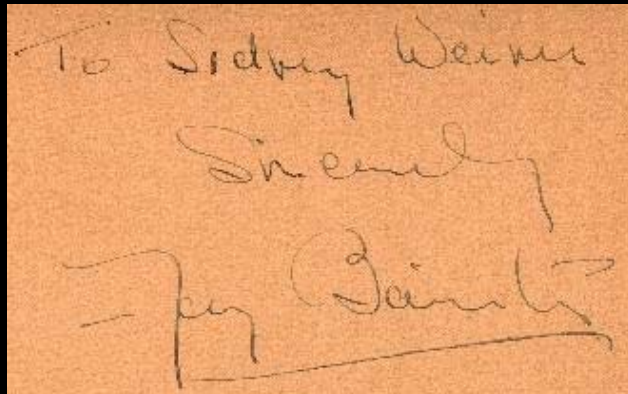 To Sidney Weiner
Sincerely
Fay Bainter